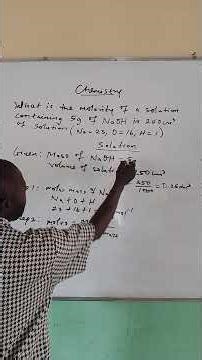 Chemistry
What is the molarity of a solution
containing 5g of NaOH in 250cm³
of solution (Na=23, O=16, H=1)
Solution
Given: Mass of NaOH =
volume of solution 250cm³
250
1000 = 0.25dm³
1: molar mass of
Na + O + H
23 + 16 + 1
moles =
mass